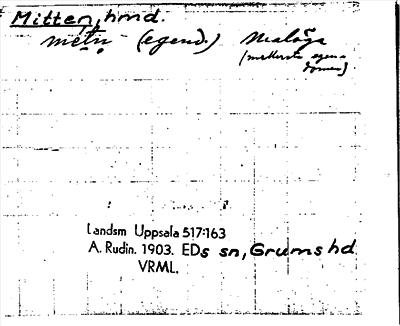 Mitten, hmd.
mètṇ (egend.) Malöga
(mellersta egen-
domen)
Landsm Uppsala 517:163
A. Rudin. 1903. EDs sn, Grums hd
VRML.